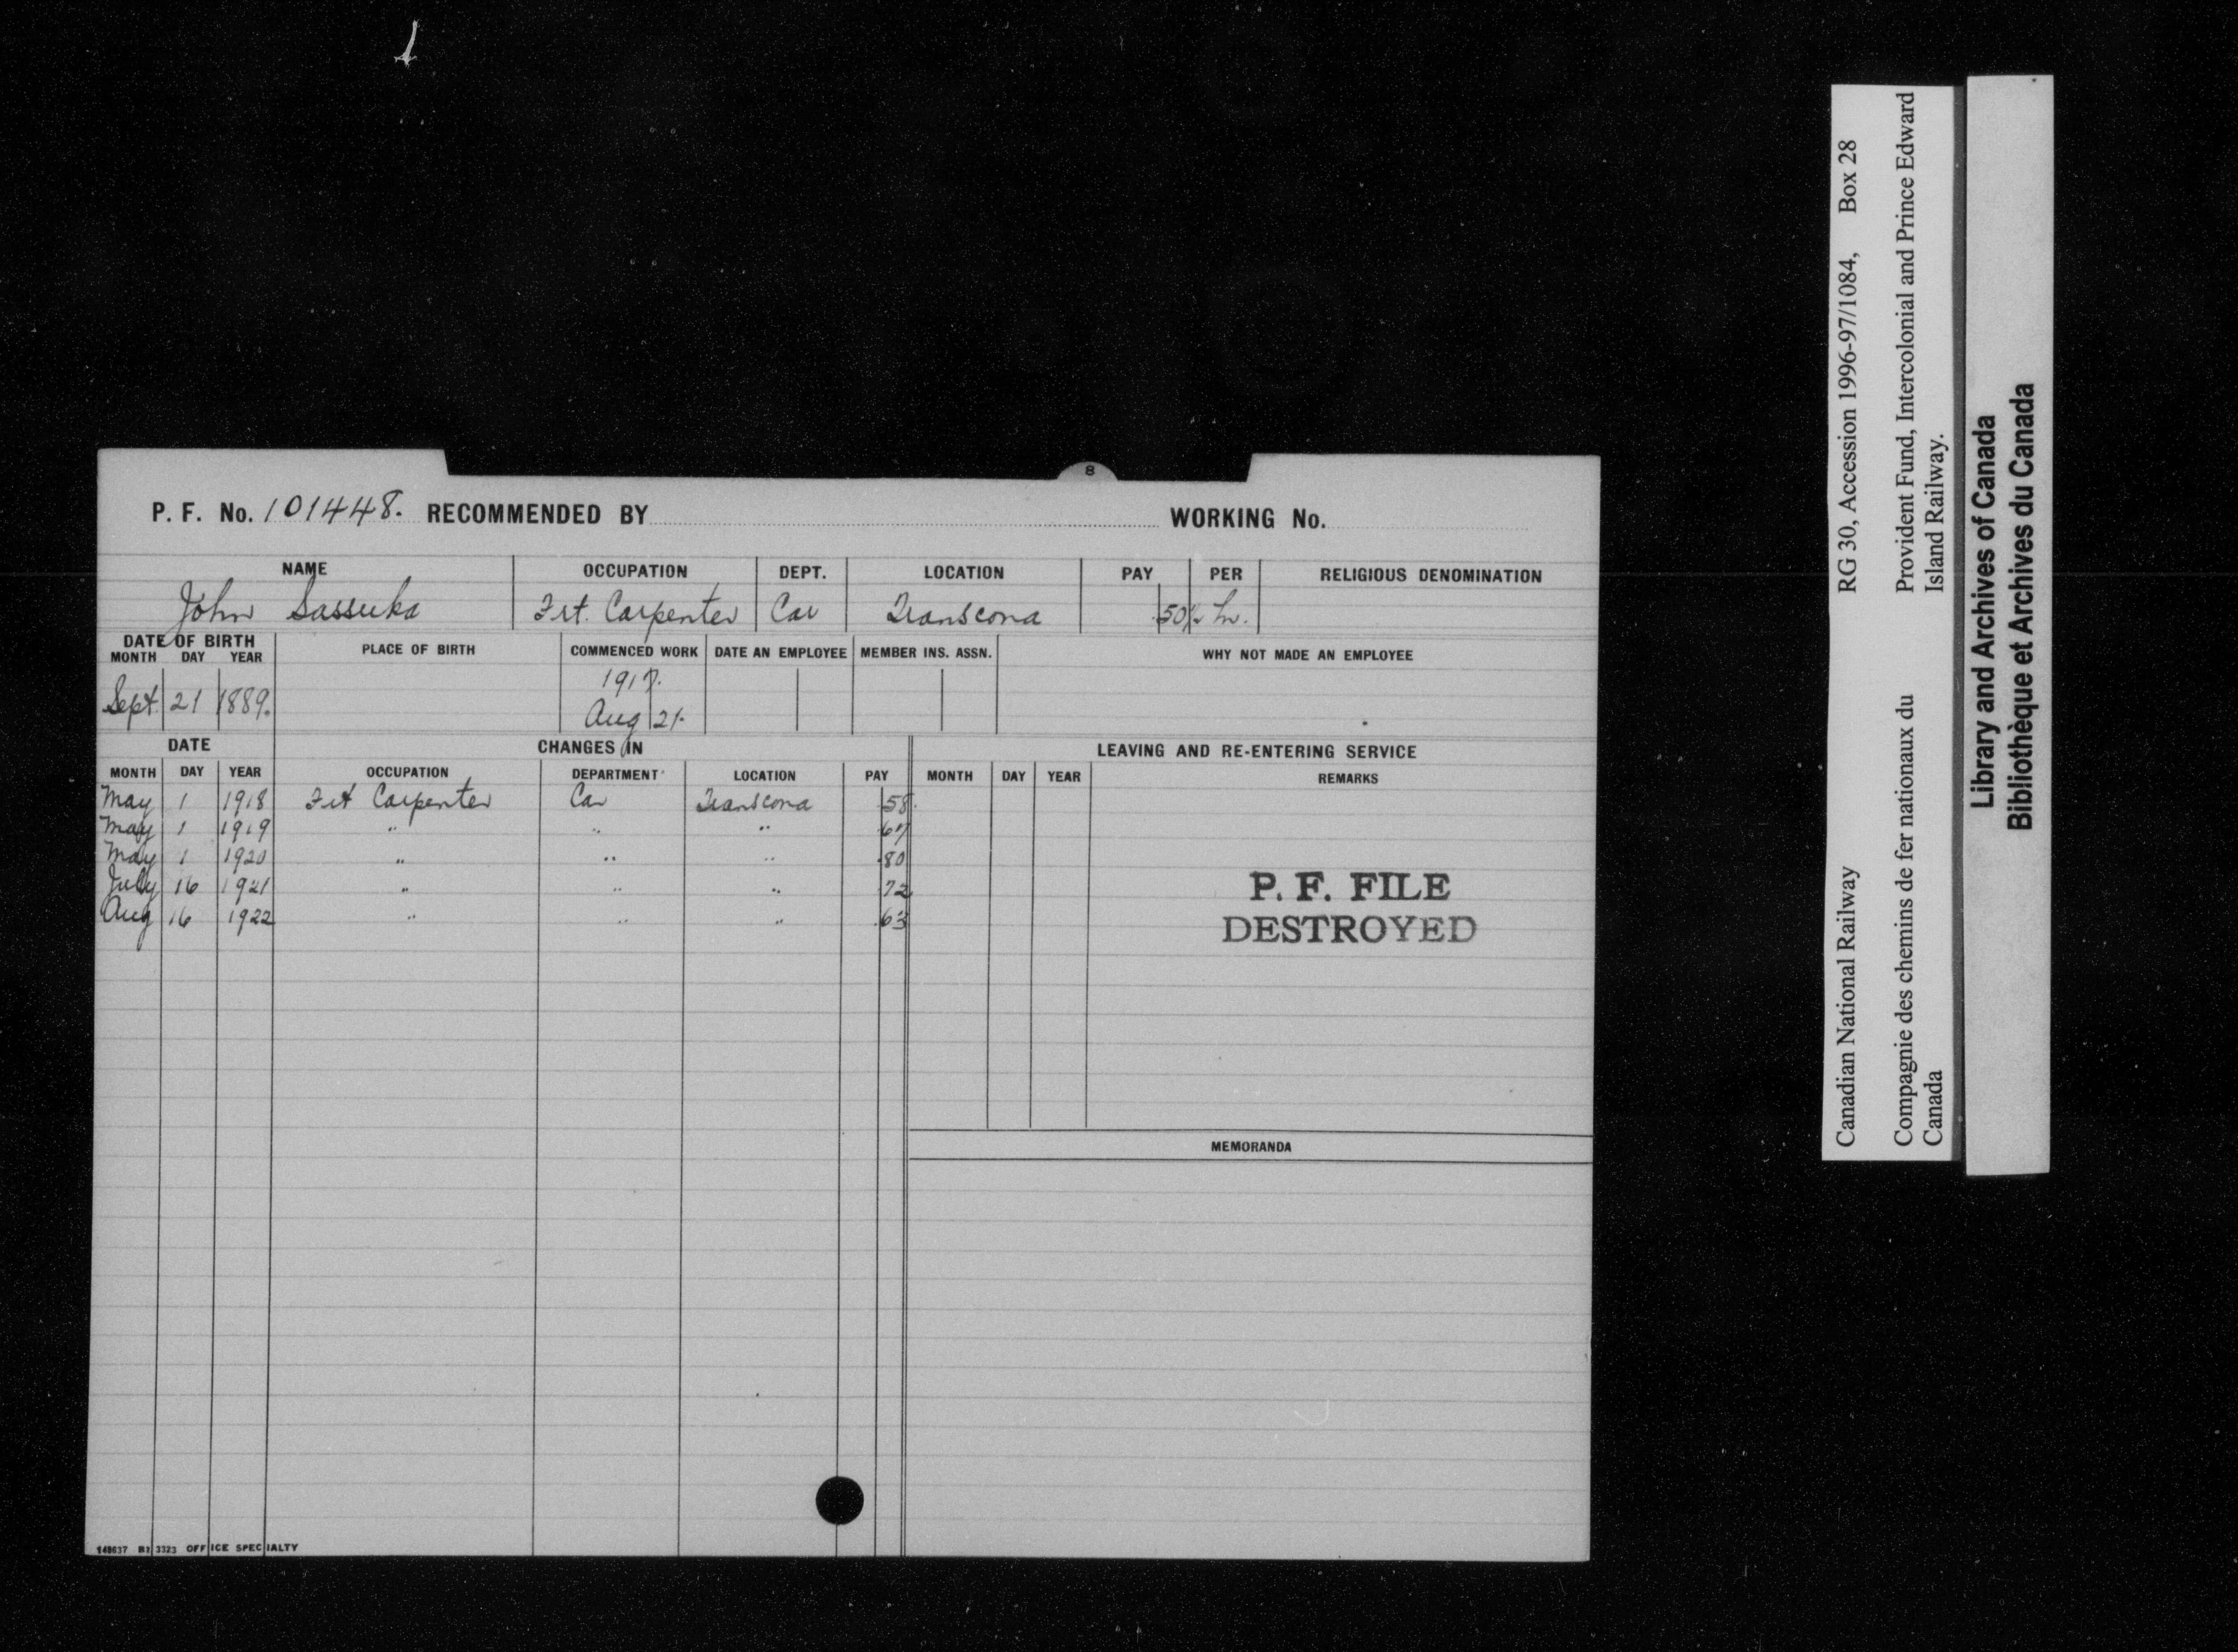 8
P. F. No. 101448. RECOMMENDED BY WORKING No.
NAME OCCUPATION DEPT. LOCATION PAY PER RELIGIOUS DENOMINATION
John Sassuka Frt. Carpenter Car Transcona .50½ hr.
DATE OF BIRTH
MONTH DAY YEAR PLACE OF BIRTH COMMENCED WORK DATE AN EMPLOYEE MEMBER INS. ASSN. WHY NOT MADE AN EMPLOYEE
1917.
Sept. 21 1889. Aug 21.
DATE CHANGES IN LEAVING AND RE-ENTERING SERVICE
MONTH DAY YEAR OCCUPATION DEPARTMENT LOCATION PAY MONTH DAY YEAR REMARKS
May 1 1918 Frt Carpenter Car Transcona .58
May 1 1919 " " " .67
May 1 1920 " " " .80
July 16 1921 " " " .72
Aug 16 1922 " " " .63
P. F. FILE
DESTROYED
MEMORANDA
148637 B1 3323 OFFICE SPECIALTY
Canadian National Railway RG 30, Accession 1996-97/1084, Box 28
Compagnie des chemins de fer nationaux du Provident Fund, Intercolonial and Prince Edward
Canada Island Railway.
Library and Archives of Canada
Bibliothèque et Archives du Canada